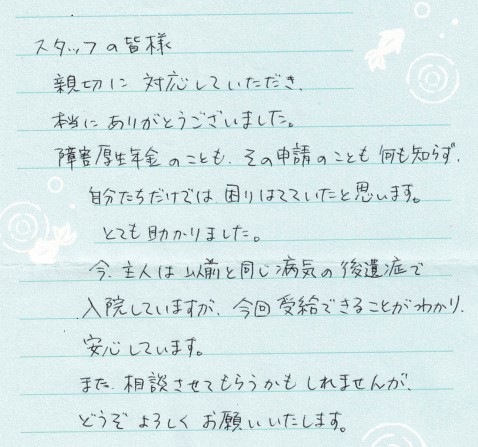 スタッフの皆様
親切に対応していただき、
本当にありがとうございました。
障害厚生年金のことも、その申請のことも何も知らず、
自分たちだけでは困りはてていたと思います。
とても助かりました。
今、主人は以前と同じ病気の後遺症で
入院していますが、今回受給できることがわかり、
安心しています。
また、相談させてもらうかもしれませんが、
どうぞよろしくお願いいたします。